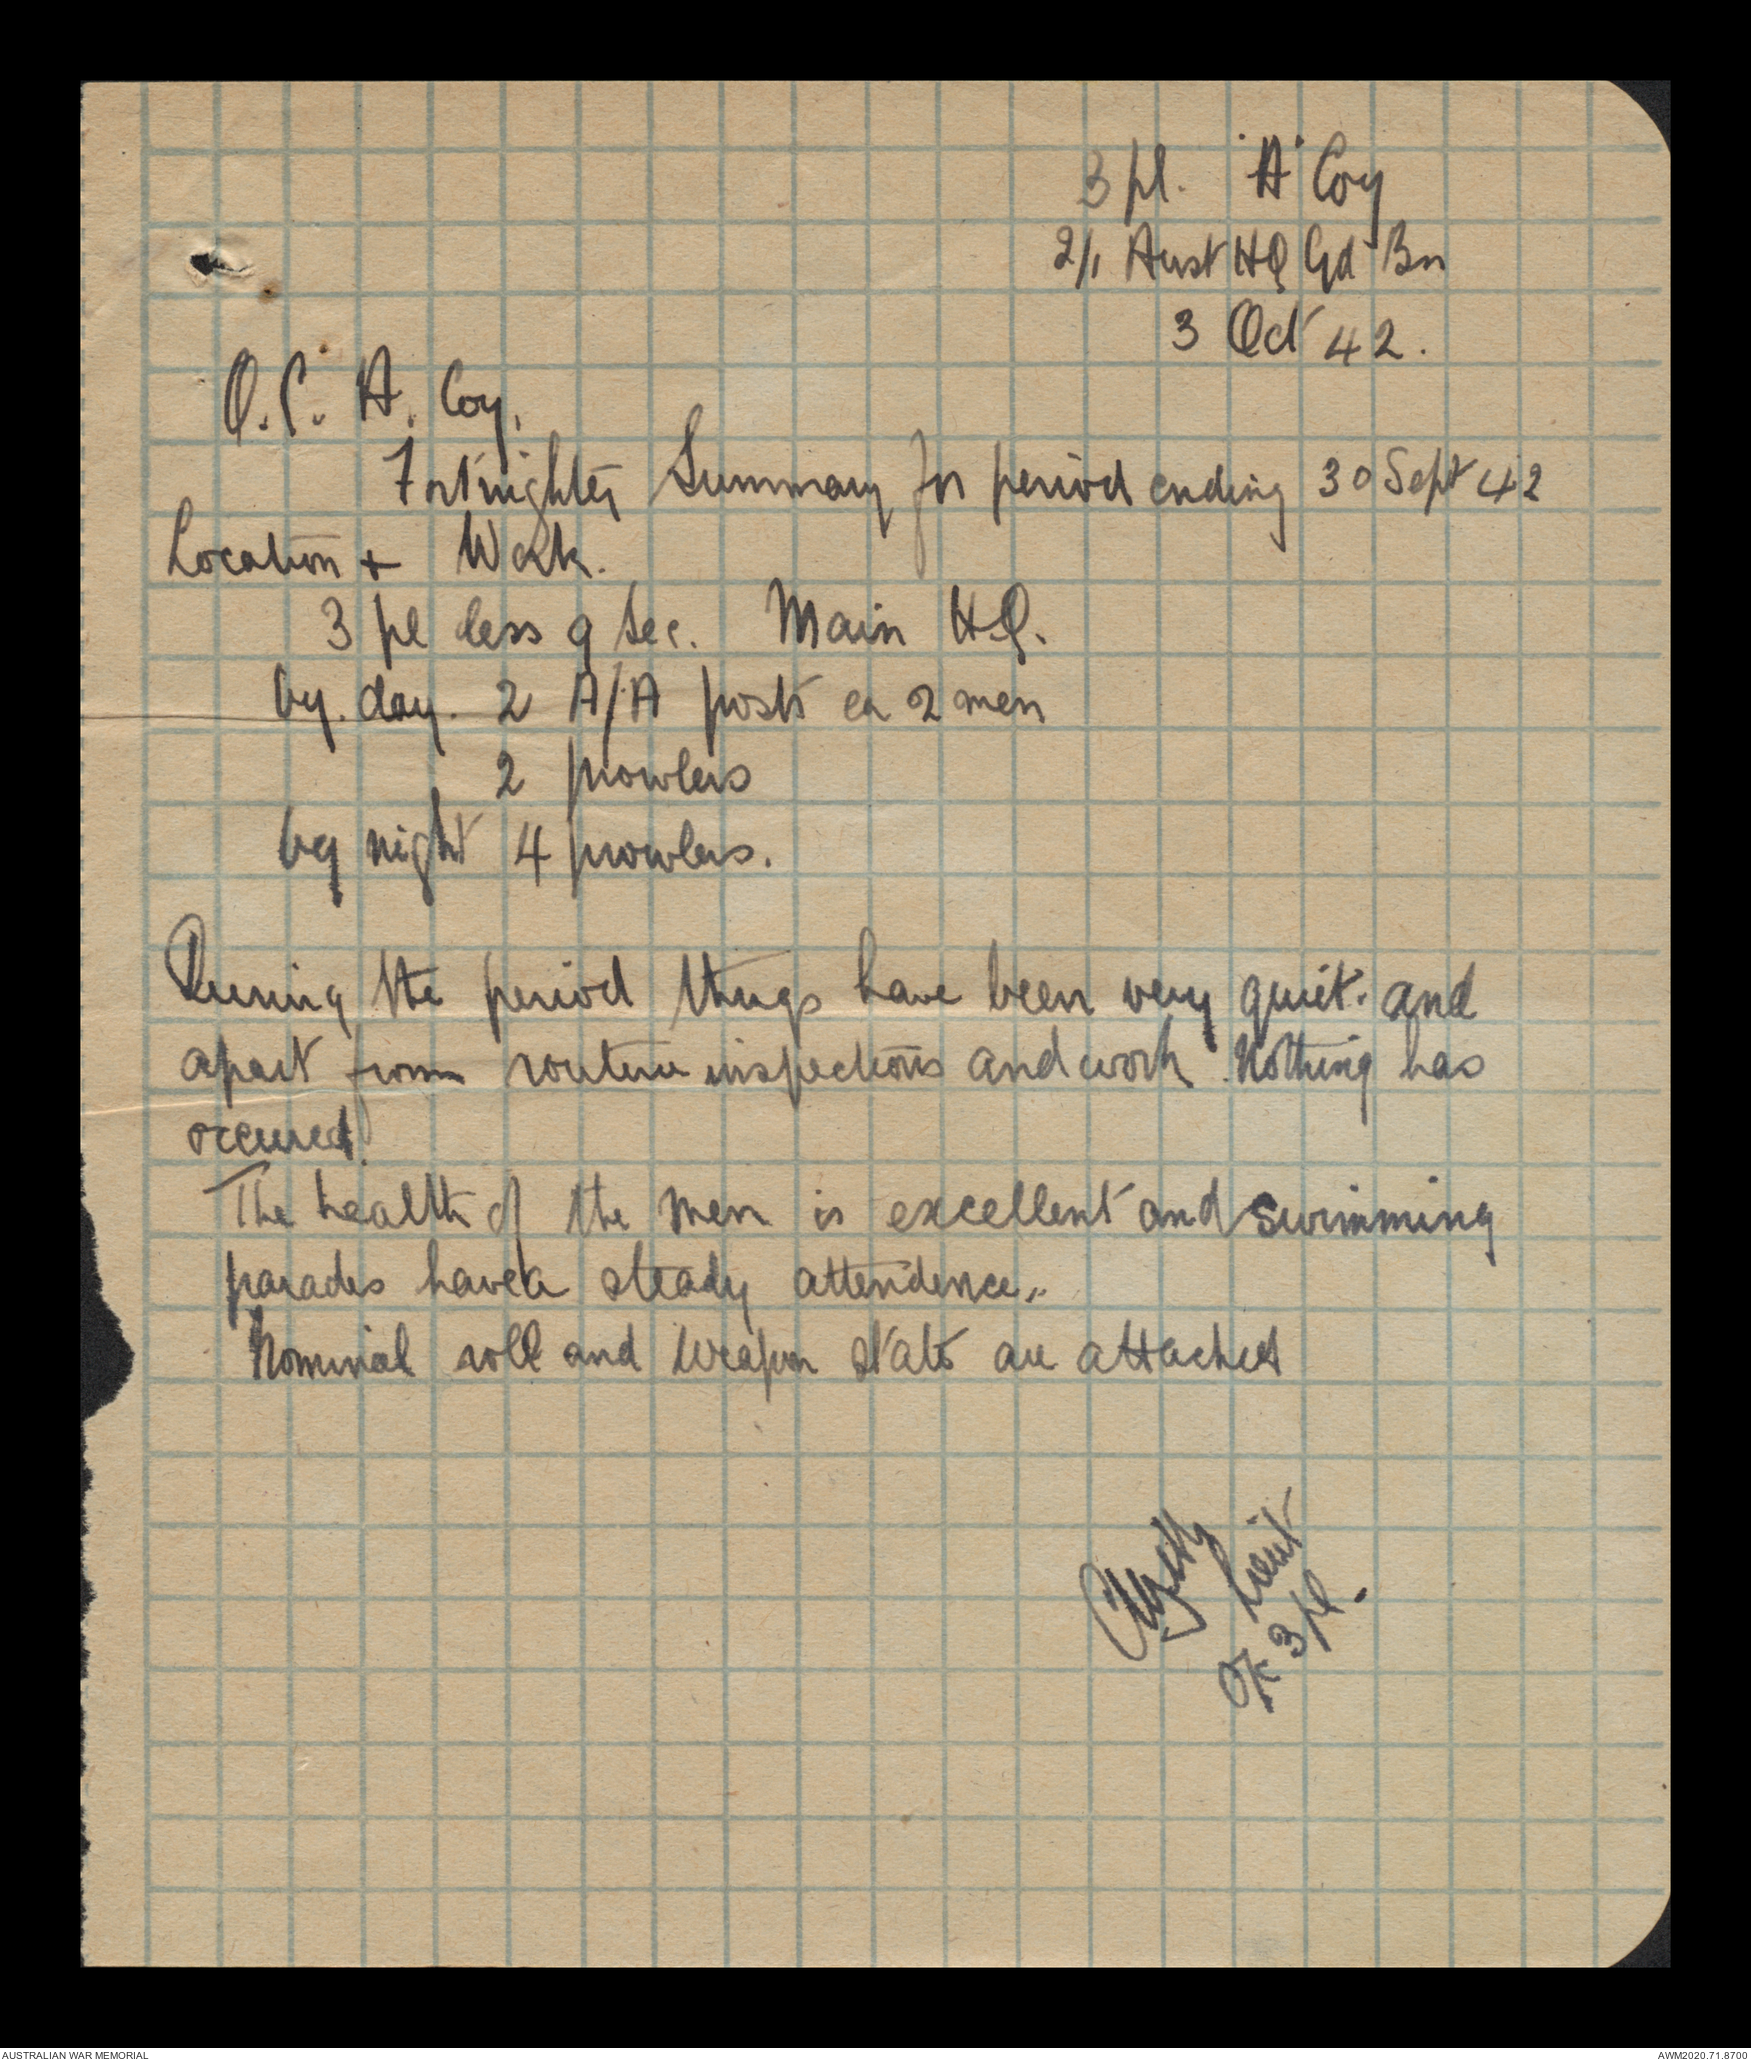 3 pl. "A" Coy
2/1 Aust HQ Gd Bn
3 Oct 42.
O.C. A. Coy.
Fortnightly Summary for period ending 30 Sept 42
Location + Work.
3 pl less 9 Sec. Main HQ.
by. day. 2 A/A posts ea 2 men
2 prowlers
by night 4 prowlers.
During the period things have been very quiet. and
apart from routine inspections and work. Nothing has
occured.
The health of the men is excellent and swimming
parades have a steady attendence.
Nominal roll and Weapon state are attached
Lieut
O/C 3 pl.
AUSTRALIAN WAR MEMORIAL
AWM2020.71.8700